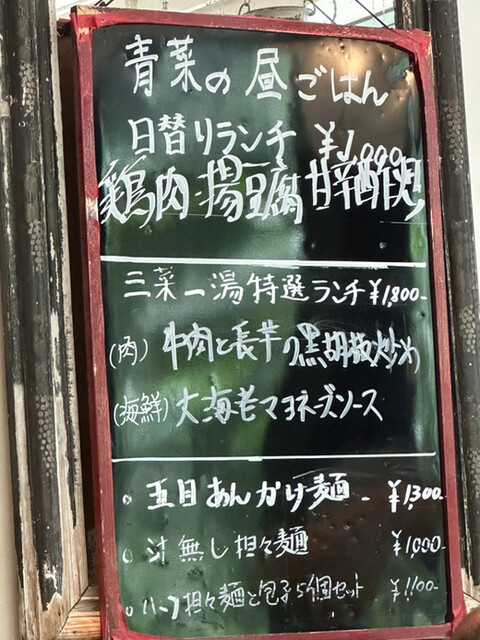 青菜の昼ごはん
日替りランチ ¥1,000
鶏肉・揚豆腐 甘辛酢煮
三菜一湯特選ランチ ¥1,800-
(肉) 牛肉と長芋の黒胡椒炒め
(海鮮) 大海老マヨネーズソース
。五目あんかけ麺 - ¥1,300
。汁無し担々麺 ¥1,000
。ハーフ担々麺と包子5個セット ¥1,100